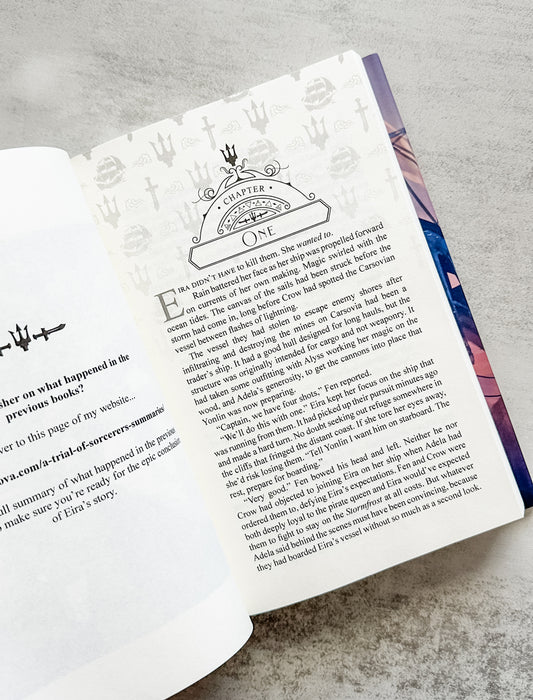 sher on what happened in the
previous books?
ver to this page of my website...
ova.com/a-trial-of-sorcerers-summaries
ll summary of what happened in the previous
make sure you're ready for the epic conclusion
of Eira's story.
CHAPTER
ONE
EIRA DIDN'T HAVE to kill them. She wanted to.
Rain battered her face as her ship was propelled forward
on currents of her own making. Magic swirled with the
ocean tides. The canvas of the sails had been struck before the
storm had come in, long before Crow had spotted the Carsovian
vessel between flashes of lightning.
The vessel they had stolen to escape enemy shores after
infiltrating and destroying the mines on Carsovia had been a
trader's ship. It had a good hull designed for long hauls, but the
structure was originally intended for cargo and not weaponry. It
had taken some outfitting with Alyss working her magic on the
wood, and Adela's generosity, to get the cannons into place that
Yonlin was now preparing.
"Captain, we have four shots," Fen reported.
"We'll do this with one." Eira kept her focus on the ship that
was running from them. It had picked up their pursuit minutes ago
and made a hard turn. No doubt seeking out refuge somewhere in
the cliffs that fringed the distant coast. If she tore her eyes away,
she'd risk losing them. "Tell Yonlin I want him on starboard. The
rest, prepare for boarding."
"Very good." Fen bowed his head and left. Neither he nor
Crow had objected to joining Eira on her ship when Adela had
ordered them to, defying Eira's expectations. Fen and Crow were
both deeply loyal to the pirate queen and Eira would've expected
them to fight to stay on the Stormfrost at all costs. But whatever
Adela said behind the scenes must have been convincing, because
they had boarded Eira's vessel without so much as a second look.